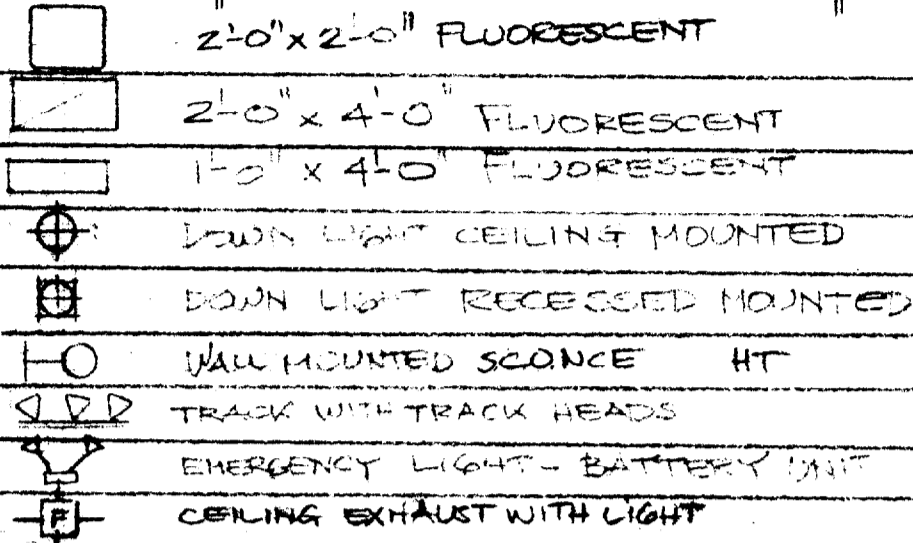 " "
2'-0" x 2'-0" FLUORESCENT
2'-0" x 4'-0" FLUORESCENT
1'-0" x 4'-0" FLUORESCENT
DOWN LIGHT CEILING MOUNTED
DOWN LIGHT RECESSED MOUNTED
WALL MOUNTED SCONCE HT
TRACK WITH TRACK HEADS
EMERGENCY LIGHT - BATTERY UNIT
F CEILING EXHAUST WITH LIGHT